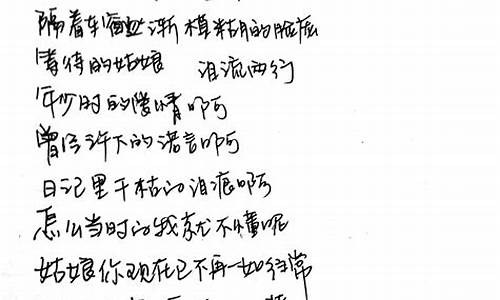 隔着车窗 渐模糊的脸庞
等待的姑娘 泪流两行
年少时的爱情啊
曾经许下的诺言啊
日记里干枯的泪痕啊
怎么当时的我就不懂呢
姑娘你现在已不再一如往常